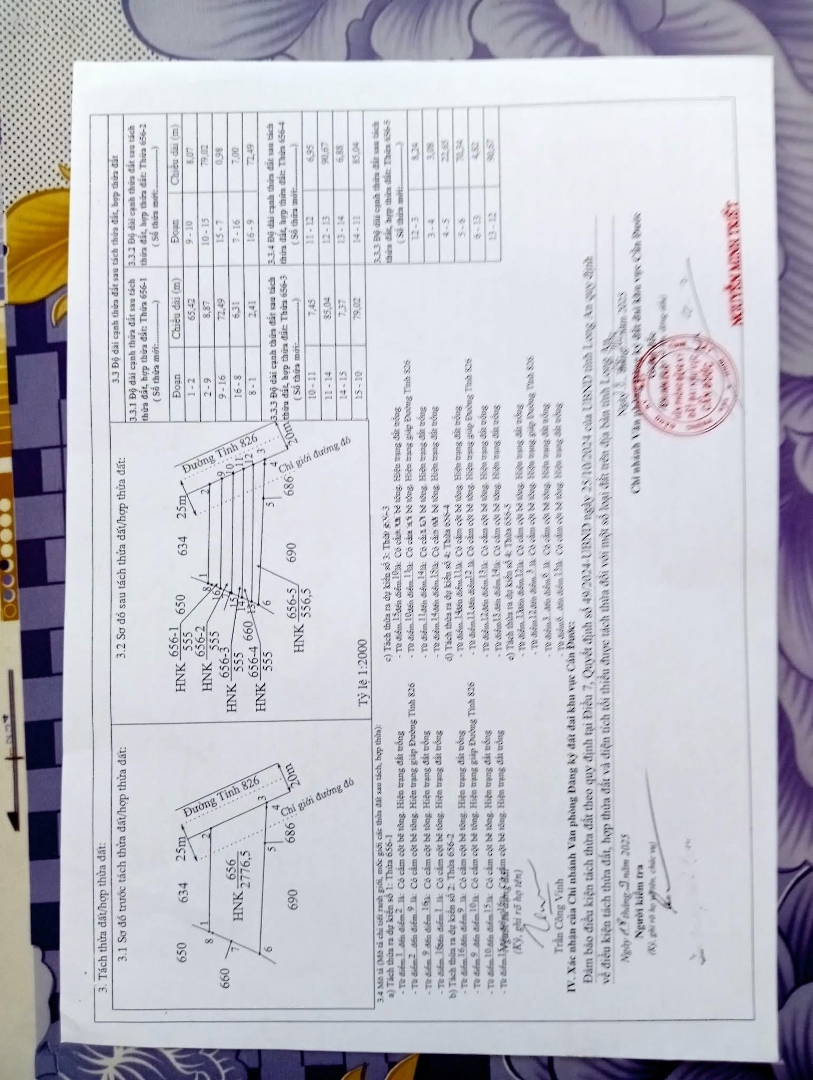 3. Tách thửa đất/hợp thửa đất:
3.1 Sơ đồ trước tách thửa đất/hợp thửa đất:
650
634
25m
Đường Tỉnh 826
20m
Chỉ giới đường đỏ
8
1
2
3
4
5
6
7
660
HNK 656
2776,5
686
690
3.2 Sơ đồ sau tách thửa đất/hợp thửa đất:
650
634
25m
Đường Tỉnh 826
20m
Chỉ giới đường đỏ
HNK 656-1
555
HNK 656-2
555
HNK 656-3
555
HNK 656-4
555
HNK 656-5
556,5
660
690
686
8
1
2
9
10
11
12
3
4
5
6
Tỷ lệ 1:2000
3.3 Độ dài cạnh thửa đất sau tách thửa đất, hợp thửa đất
3.3.1 Độ dài cạnh thửa đất sau tách
thửa đất, hợp thửa đất: Thửa 656-1
( Số thửa mới:............)
Đoạn Chiều dài (m)
1 - 2 65,42
2 - 9 8,87
9 - 16 72,49
16 - 8 6,31
8 - 1 2,41
3.3.2 Độ dài cạnh thửa đất sau tách
thửa đất, hợp thửa đất: Thửa 656-2
( Số thửa mới:............)
Đoạn Chiều dài (m)
9 - 10 8,07
10 - 15 79,02
15 - 7 0,98
7 - 16 7,00
16 - 9 72,49
3.3.3 Độ dài cạnh thửa đất sau tách
thửa đất, hợp thửa đất: Thửa 656-3
( Số thửa mới:............)
10 - 11 7,45
11 - 14 85,04
14 - 15 7,37
15 - 10 79,02
3.3.4 Độ dài cạnh thửa đất sau tách
thửa đất, hợp thửa đất: Thửa 656-4
( Số thửa mới:............)
11 - 12 6,95
12 - 13 90,67
13 - 14 6,88
14 - 11 85,04
3.3.3 Độ dài cạnh thửa đất sau tách
thửa đất, hợp thửa đất: Thửa 656-5
( Số thửa mới:............)
12 - 3 8,24
3 - 4 3,08
4 - 5 22,65
5 - 6 70,34
6 - 13 4,82
13 - 12 90,67
3.4 Mô tả (Mô tả chi tiết ranh giới, mốc giới các thửa đất sau tách, hợp thửa):
a) Tách thửa ra dự kiến số 1: Thửa 656-1
- Từ điểm 1 đến điểm 2 là: Có cắm cột bê tông, Hiện trạng đất trống
- Từ điểm 2 đến điểm 9 là: Có cắm cột bê tông, Hiện trạng giáp Đường Tỉnh 826
- Từ điểm 9 đến điểm 16 là: Có cắm cột bê tông, Hiện trạng đất trống
- Từ điểm 16 đến điểm 1 là: Có cắm cột bê tông, Hiện trạng đất trống
b) Tách thửa ra dự kiến số 2: Thửa 656-2
- Từ điểm 16 đến điểm 9 là: Có cắm cột bê tông, Hiện trạng đất trống
- Từ điểm 9 đến điểm 10 là: Có cắm cột bê tông, Hiện trạng giáp Đường Tỉnh 826
- Từ điểm 10 đến điểm 15 là: Có cắm cột bê tông, Hiện trạng đất trống
- Từ điểm 15 cắm cột bê tông, Hiện trạng đất trống
c) Tách thửa ra dự kiến số 3: Thửa 656-3
- Từ điểm 15 đến điểm 10 là: Có cắm cột bê tông, Hiện trạng đất trống
- Từ điểm 10 đến điểm 11 là: Có cắm cột bê tông, Hiện trạng giáp Đường Tỉnh 826
- Từ điểm 11 đến điểm 14 là: Có cắm cột bê tông, Hiện trạng đất trống
- Từ điểm 14 đến điểm 15 là: Có cắm cột bê tông, Hiện trạng đất trống
d) Tách thửa ra dự kiến số 4: Thửa 656-4
- Từ điểm 14 đến điểm 11 là: Có cắm cột bê tông, Hiện trạng đất trống
- Từ điểm 11 đến điểm 12 là: Có cắm cột bê tông, Hiện trạng giáp Đường Tỉnh 826
- Từ điểm 12 đến điểm 13 là: Có cắm cột bê tông, Hiện trạng đất trống
- Từ điểm 13 đến điểm 14 là: Có cắm cột bê tông, Hiện trạng đất trống
e) Tách thửa ra dự kiến số 4: Thửa 656-5
- Từ điểm 13 đến điểm 12 là: Có cắm cột bê tông, Hiện trạng đất trống
- Từ điểm 12 đến điểm 3 là: Có cắm cột bê tông, Hiện trạng giáp Đường Tỉnh 826
- Từ điểm 3 đến điểm 6 là: Có cắm cột bê tông, Hiện trạng đất trống
- Từ điểm 6 đến điểm 13 là: Có cắm cột bê tông, Hiện trạng đất trống
(Ký, ghi rõ họ tên)
Trần Công Vinh
IV. Xác nhận của Chi nhánh Văn phòng Đăng ký đất đai khu vực Cần Đước:
Đảm bảo điều kiện tách thửa đất theo quy định tại Điều 7, Quyết định số 49/2024/UBND ngày 25/10/2024 của UBND tỉnh Long An quy định
về điều kiện tách thửa đất, hợp thửa đất và diện tích tối thiểu được tách thửa đối với một số loại đất trên địa bàn tỉnh Long An.
năm 2025
Người kiểm tra
(Ký, ghi rõ họ và tên, chức vụ)
năm 2025
Chi nhánh Văn phòng đăng ký đất đai khu vực Cần Đước
NGUYỄN MINH TRIẾT